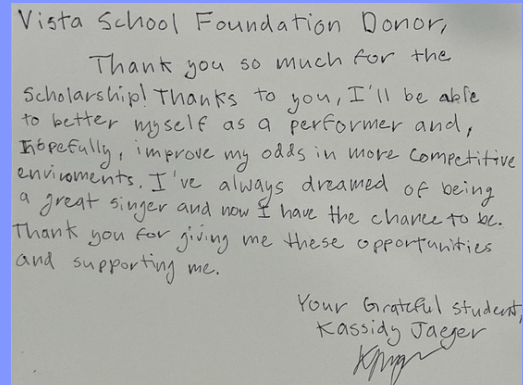 Vista School Foundation Donor,
Thank you so much for the
scholarship! Thanks to you, I'll be able
to better myself as a performer and,
hopefully, improve my odds in more competitive
enviroments. I've always dreamed of being
a great singer and now I have the chance to be.
Thank you for giving me these opportunities
and supporting me.
Your Grateful student,
Kassidy Jaeger